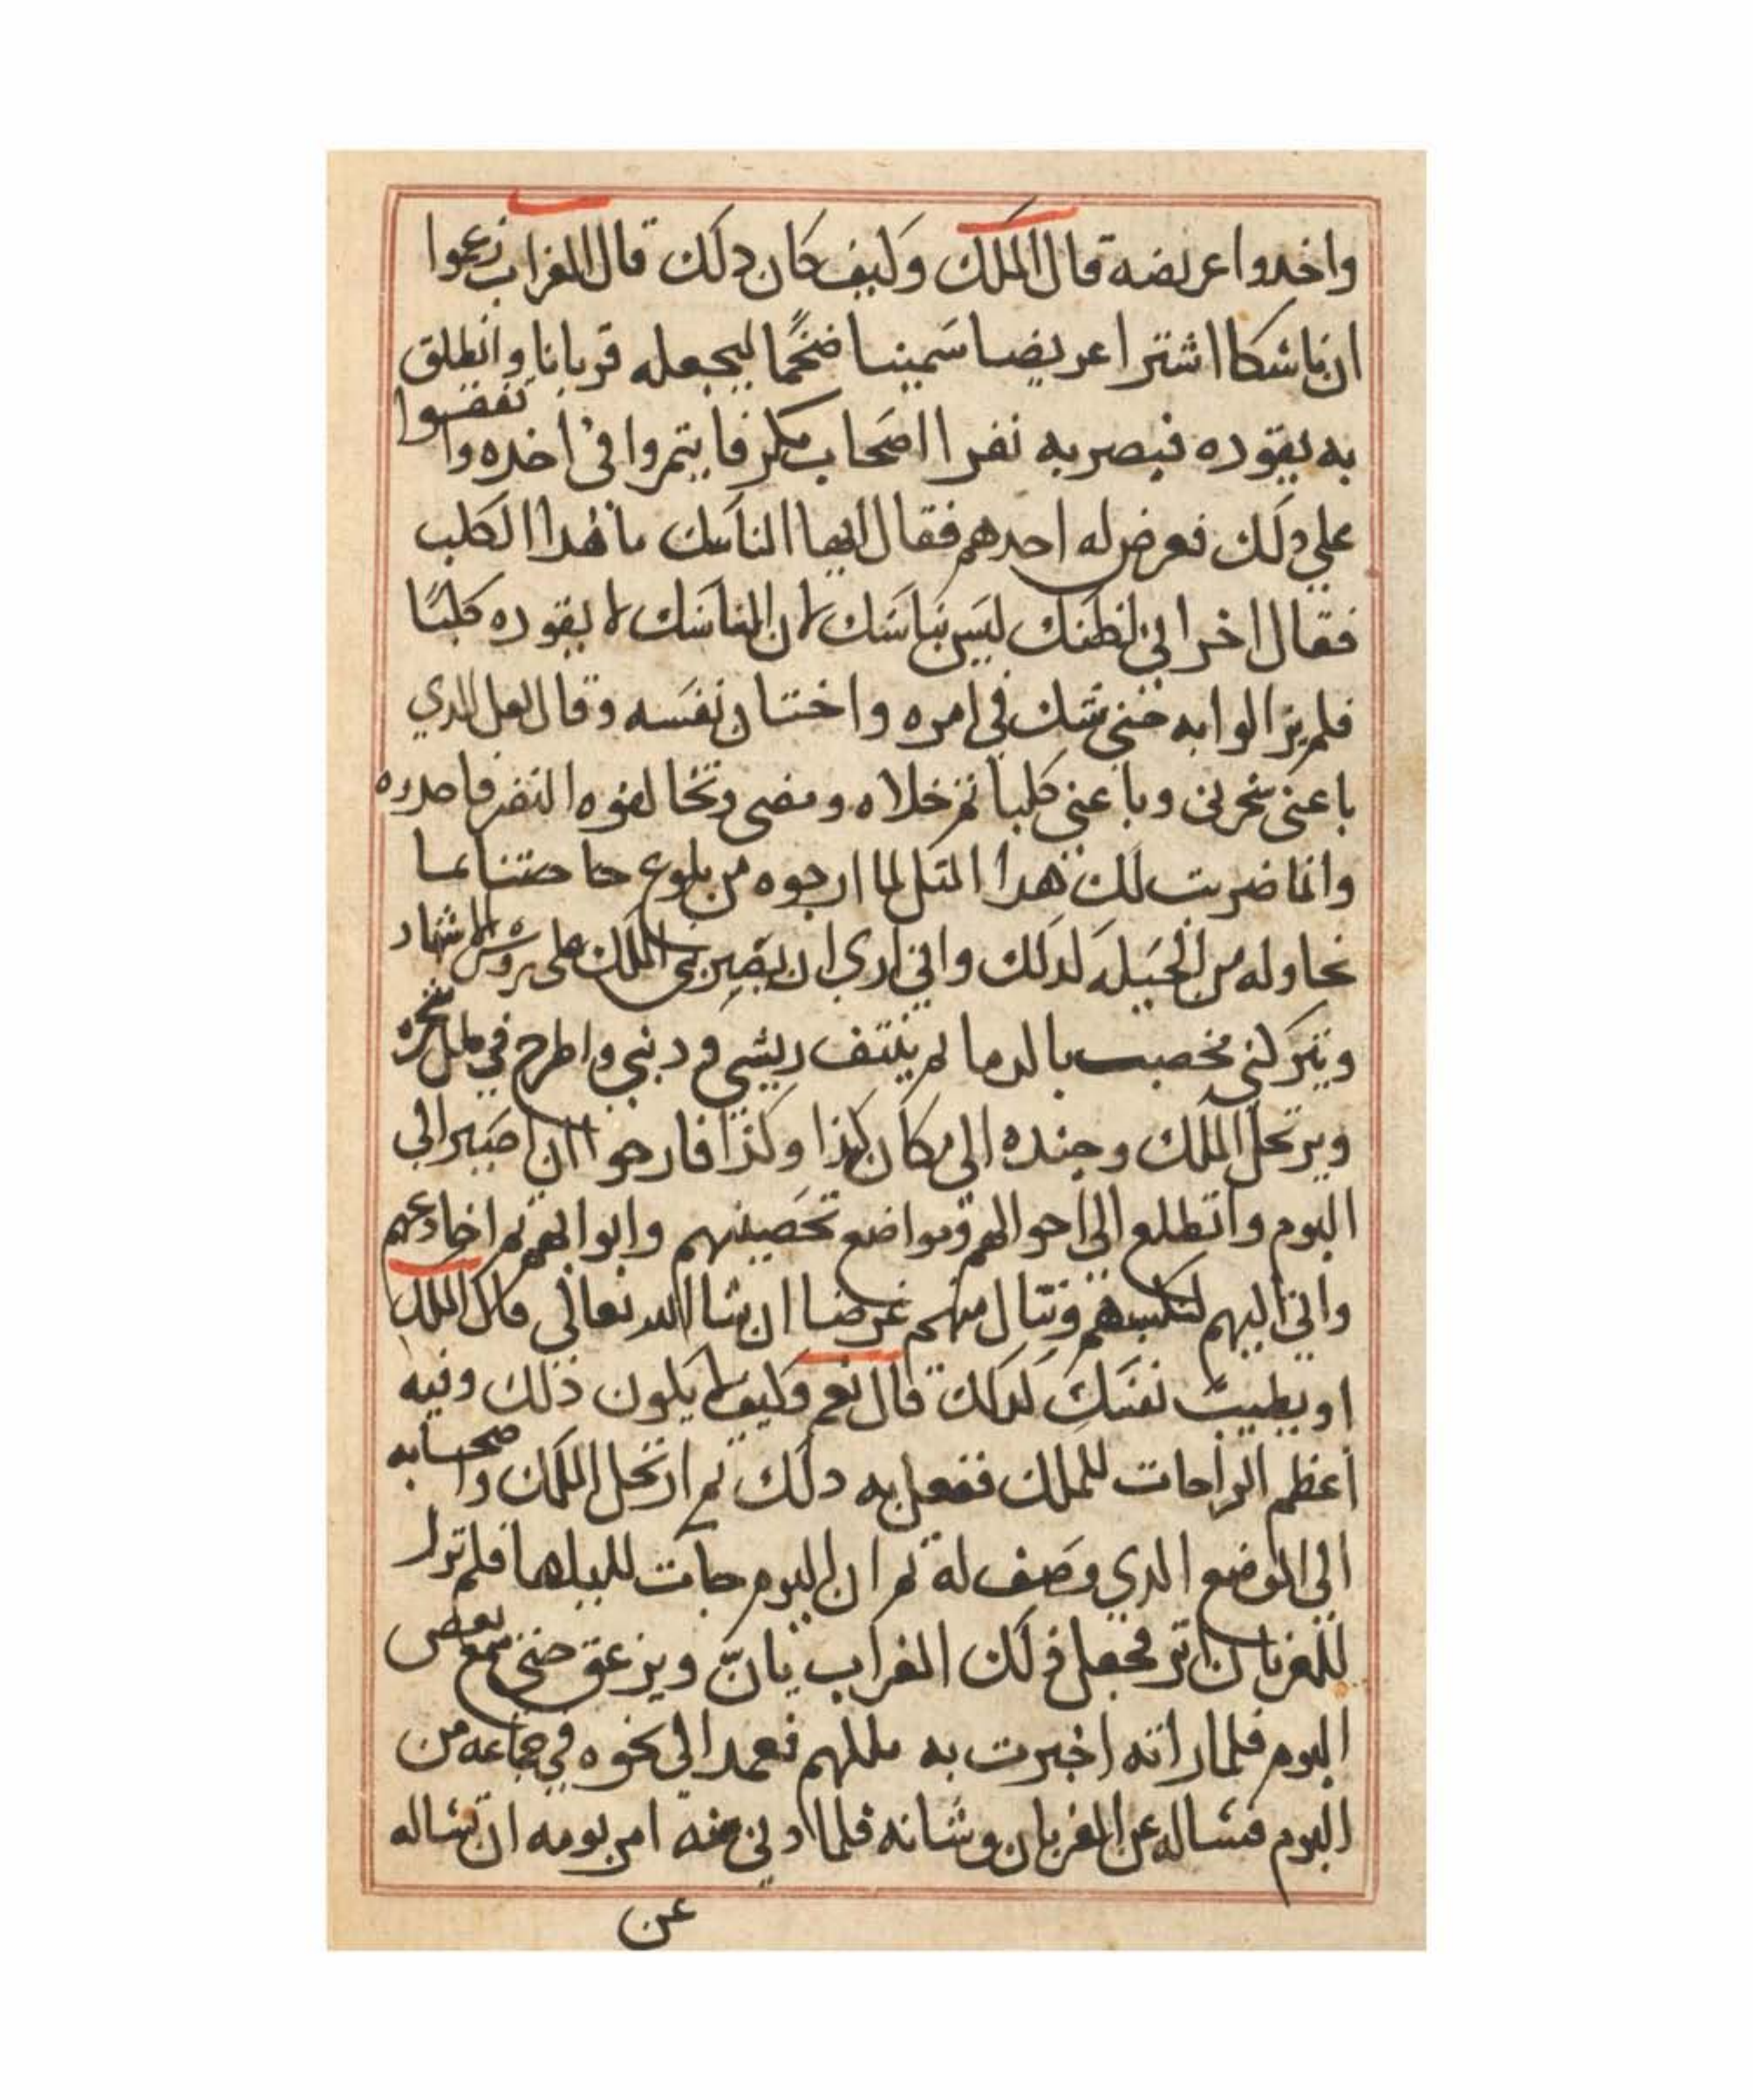 واخدوا عريضه قال الملك وكيف كان دلك قال الغراب زعموا
ان ناسكا اشترا عريضا سمينا ضخما ليجعله قربانا وانطلق
به يقوده فبصر به نفرا اصحاب مكر فايتمروا في اخده واتفقوا
علي دلك فعرض له احدهم فقال ايها الناسك ما هدا الكلب
فقال اخر اني لظنك ليس بناسك لان الناسك لا يقوده كلبا
فلم يزالوا به حتى شك في امره واختان نفسه وقال لعل الدي
باعني سحرني وباعني كلبا ثم خلاه ومضى وتخالفوه النفر فاخدوه
وانما ضربت لك هدا المتل لما ارجوه من بلوغ حاجتنا بما
نحاوله من الحيله لدلك واني اري ان يضربني الملك على روس الاشهاد
ويتركني مخصب بالدما ثم ينتف ريشي ودنبي واطرح في اصل شجره
ويرتحل الملك وجنده الى مكان كذا وكذا فارجوا ان اصير الي
البوم واتطلع الي احوالهم ومواضع تحصينهم وابوابهم ثم اخادعهم
واتي اليهم لنكبسهم وننال منهم غرضنا ان شا الله تعالى قال الملك
اويطيب نفسك لدلك قال نعم وكيف لا يكون ذلك وفيه
اعظم الراحات للملك ففعل به دلك ثم ارتحل الملك واصحابه
الي الموضع الدي وصف له ثم ان البوم جات لليلها فلم ترا
للغربان اتر فجعل دلك الغراب يان ويزعق حتى سمع بعض
البوم فلما راته اخبرت به ملكهم فعمد الي نحوه في جماعه من
البوم فيساله عن الغربان وشانه فلما دني منه امر بومه ان تساله
عن